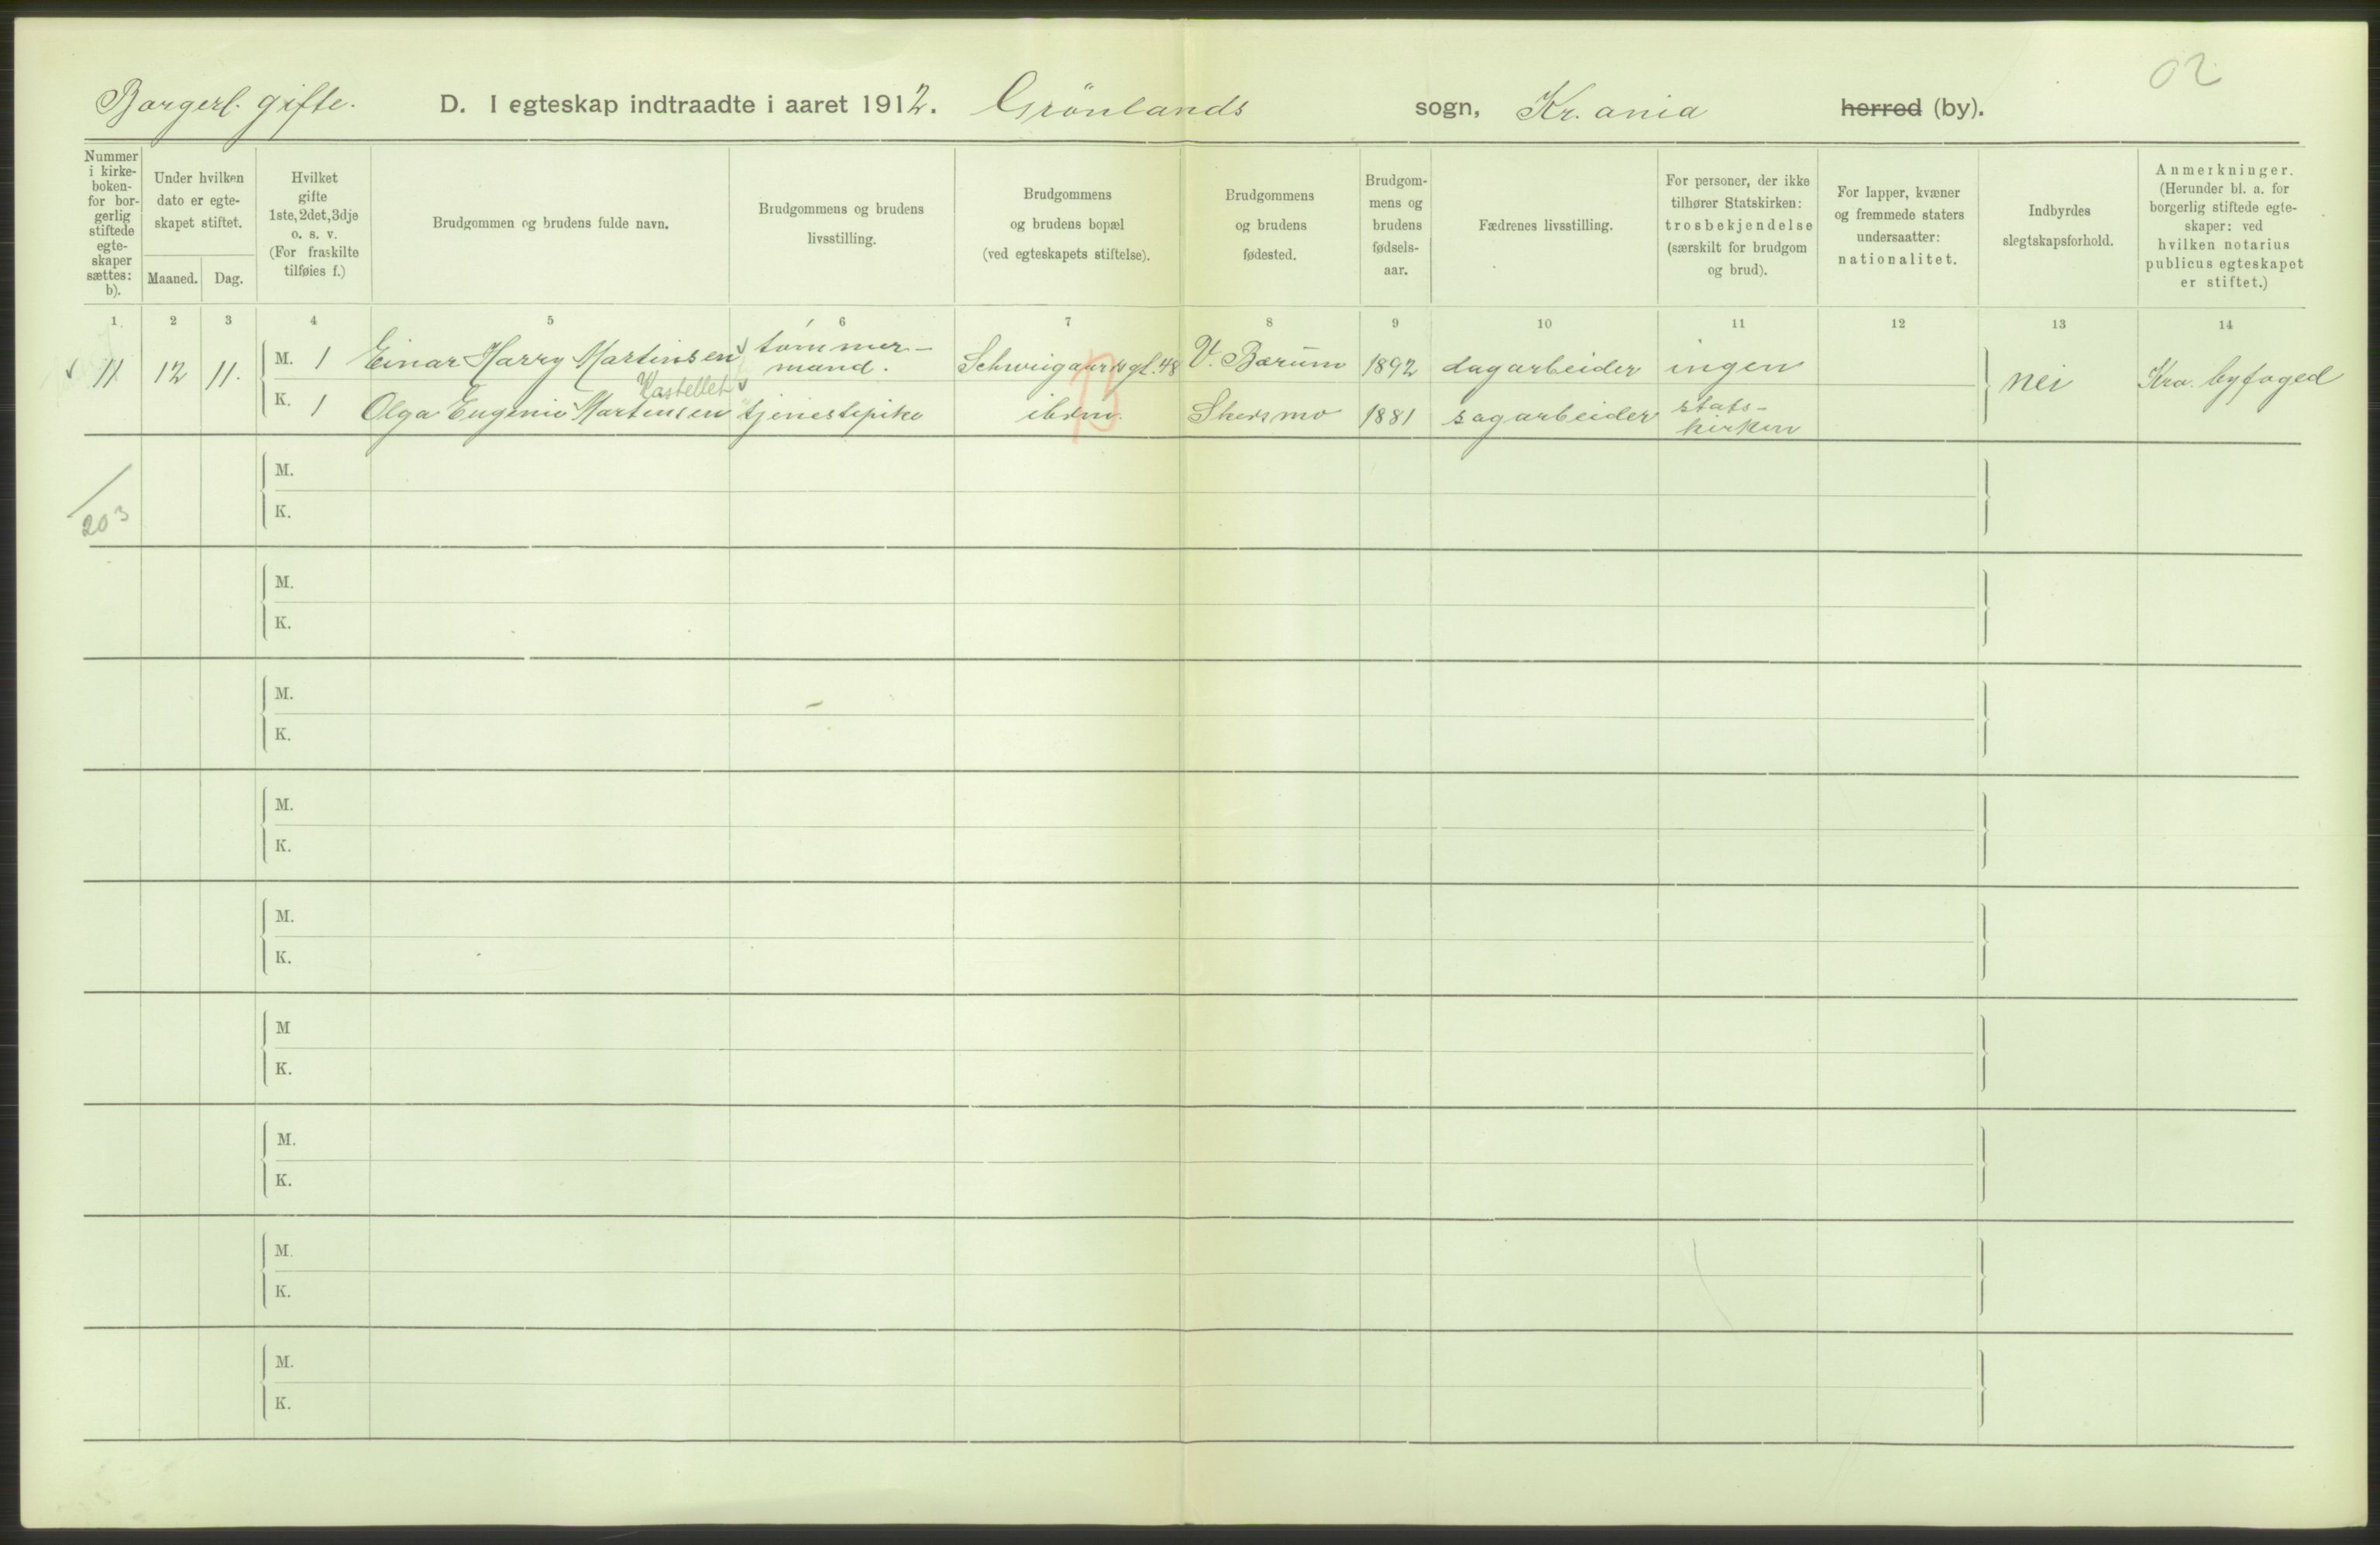 02
Borgerl. gifte. D. I egteskap indtraadte i aaret 1912. Grönlands sogn, Kr.ania herred (by).
Nummer i kirke- boken- for bor- gerlig stiftede egte- skaper sættes: b).
Under hvilken dato er egte- skapet stiftet.
Maaned. Dag.
Hvilket gifte 1ste, 2det, 3dje o. s. v. (For fraskilte tilføies f.)
Brudgommen og brudens fulde navn.
Brudgommens og brudens livsstilling.
Brudgommens og brudens bopæl (ved egteskapets stiftelse).
Brudgommens og brudens fødested.
Brudgom- mens og brudens fødsels- aar.
Fædrenes livsstilling.
For personer, der ikke tilhører Statskirken: trosbekjendelse (særskilt for brudgom og brud).
For lapper, kvæner og fremmede staters undersaatter: nationalitet.
Indbyrdes slegtskapsforhold.
Anmerkninger. (Herunder bl. a. for borgerlig stiftede egte- skaper: ved hvilken notarius publicus egteskapet er stiftet.)
1. 2 3 4 5 6 7 8 9 10 11 12 13 14
11 12 11. M. 1 Einar Harry Martinsen tömmer- mand. Schweigaardsgt. 48 V. Bærum 1892 dagarbeider ingen nei Kra. byfoged
Kastellet
K. 1 Olga Eugenie Martinsen tjenestepike ibdm. Skedsmo 1881 sagarbeider stats- kirken
203
M.
K.
M.
K.
M.
K.
M.
K.
M.
K.
M
K.
M.
K.
M.
K.
M.
K.